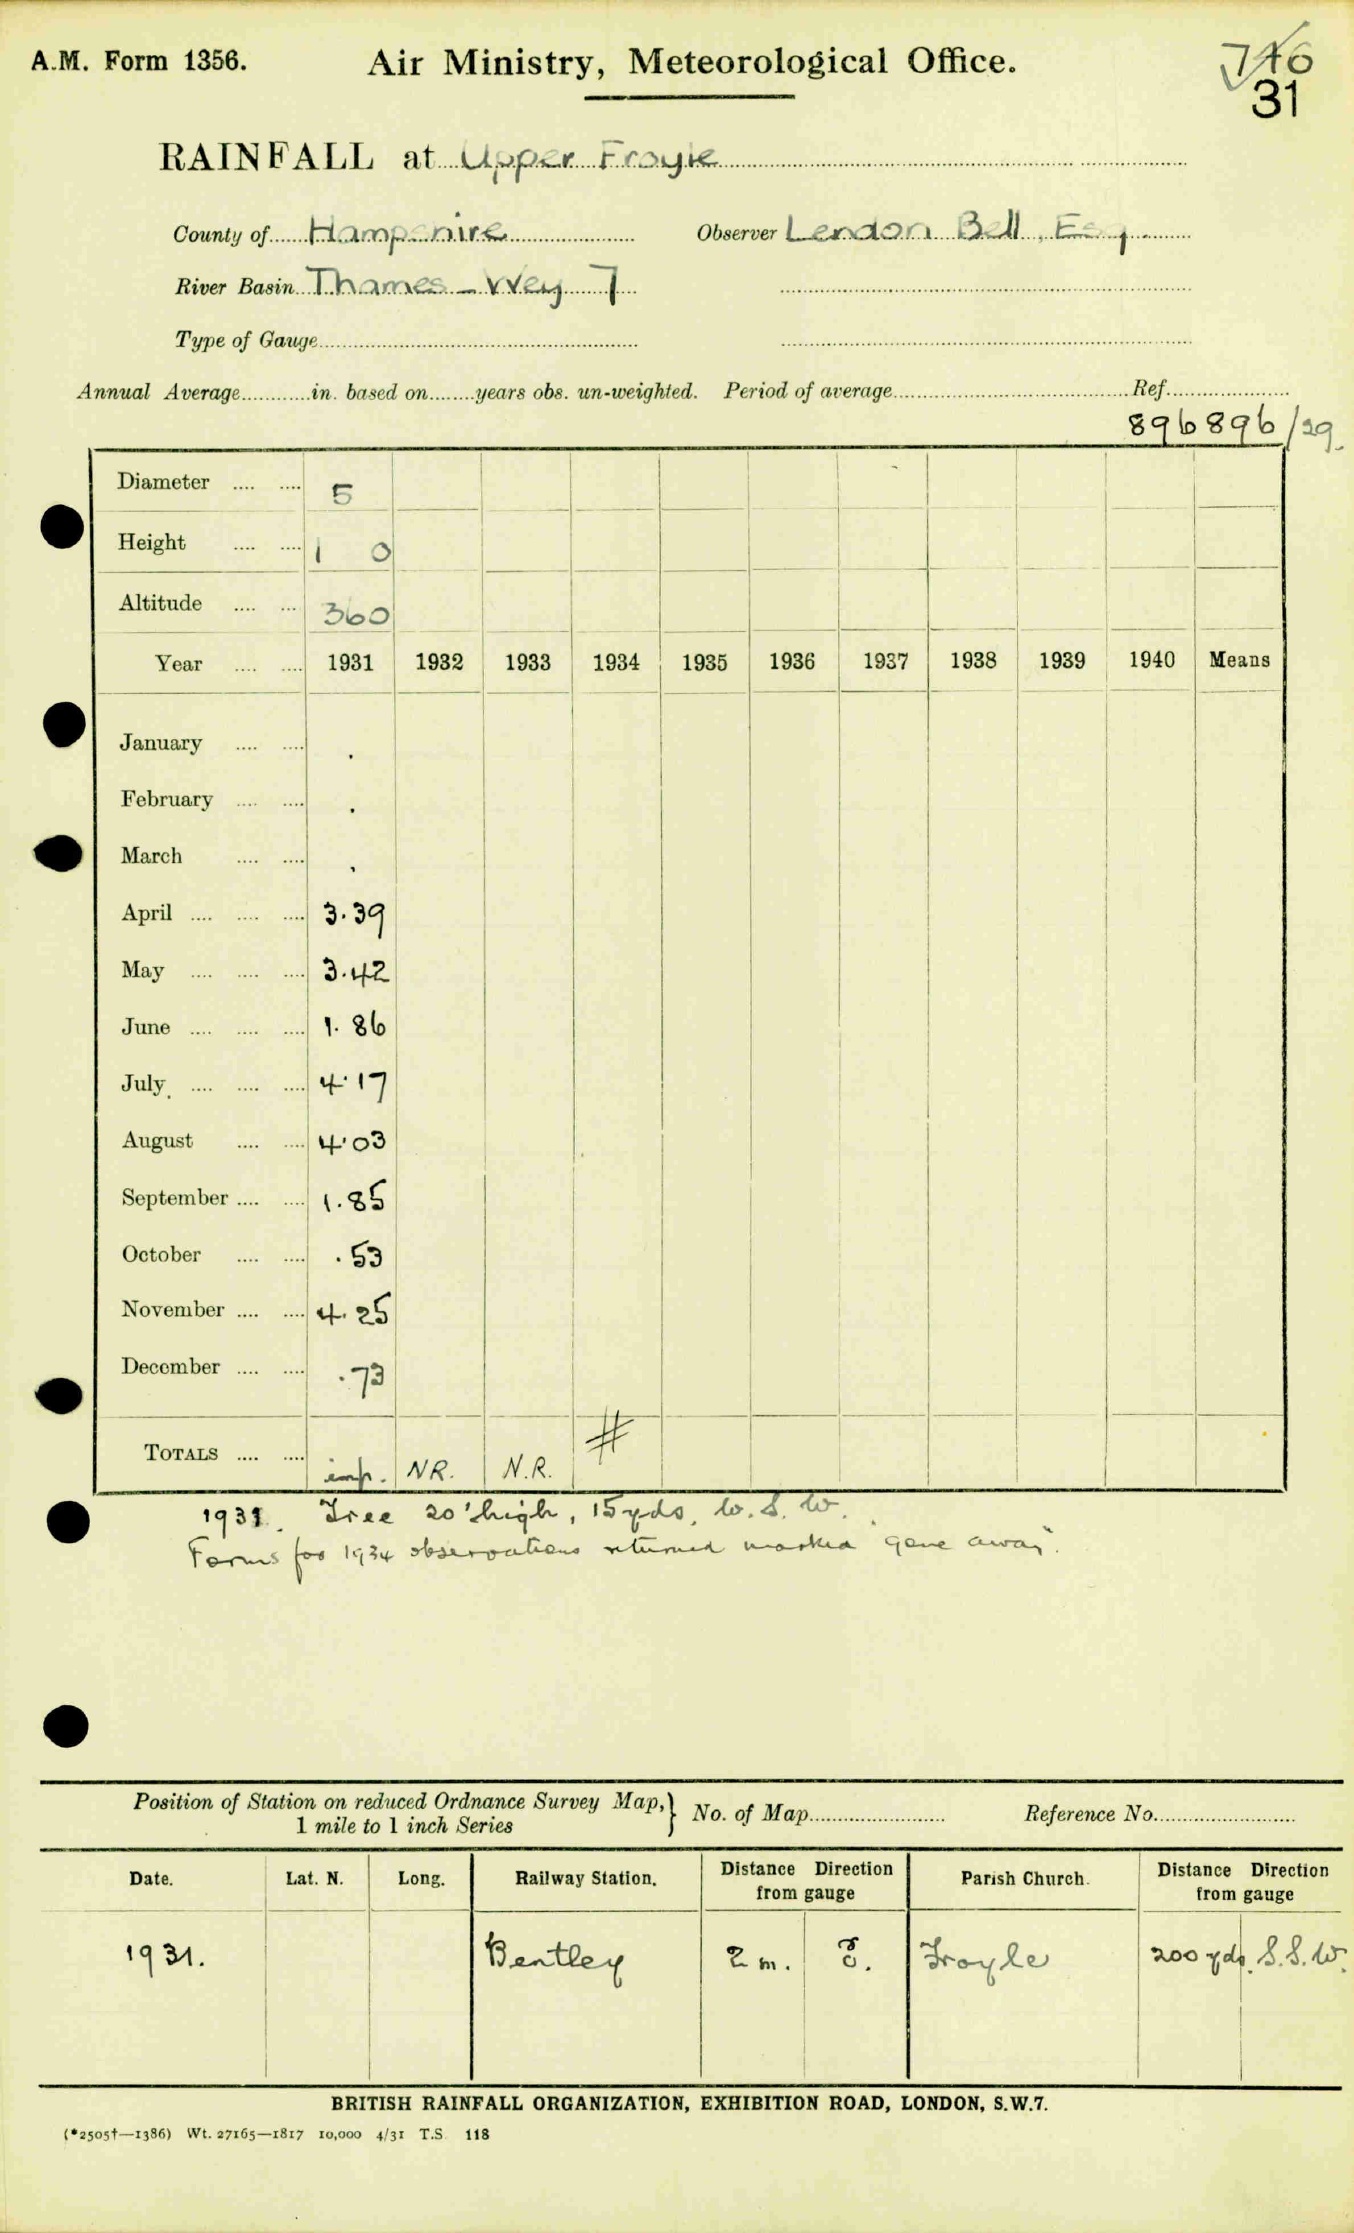 A.M. Form 1356. Air Ministry, Meteorological Office. 746
31
RAINFALL at Upper Froyle
County of Hampshire Observer Lendon Bell, Esq.
River Basin Thames - Wey 7
Type of Gauge
Annual Average in. based on years obs. un-weighted. Period of average Ref.
896 896/29.
Diameter 5
Height 1 0
Altitude 360
Year 1931 1932 1933 1934 1935 1936 1937 1938 1939 1940 Means
January .
February .
March .
April 3.39
May 3.42
June 1.86
July 4.17
August 4.03
September 1.85
October .53
November 4.25
December .73
TOTALS imp. NR. N.R. #
1931. Tree 20' high, 15 yds. W.S.W.
Forms for 1934 observations returned marked "gone away".
Position of Station on reduced Ordnance Survey Map,} No. of Map Reference No.
1 mile to 1 inch Series
Date. Lat. N. Long. Railway Station. Distance Direction from gauge Parish Church. Distance Direction from gauge
1931. Bentley 2 m. E. Froyle 200 yds. S.S.W.
BRITISH RAINFALL ORGANIZATION, EXHIBITION ROAD, LONDON, S.W.7.
(*2505†—1386) Wt. 27165—1817 10,000 4/31 T.S. 118